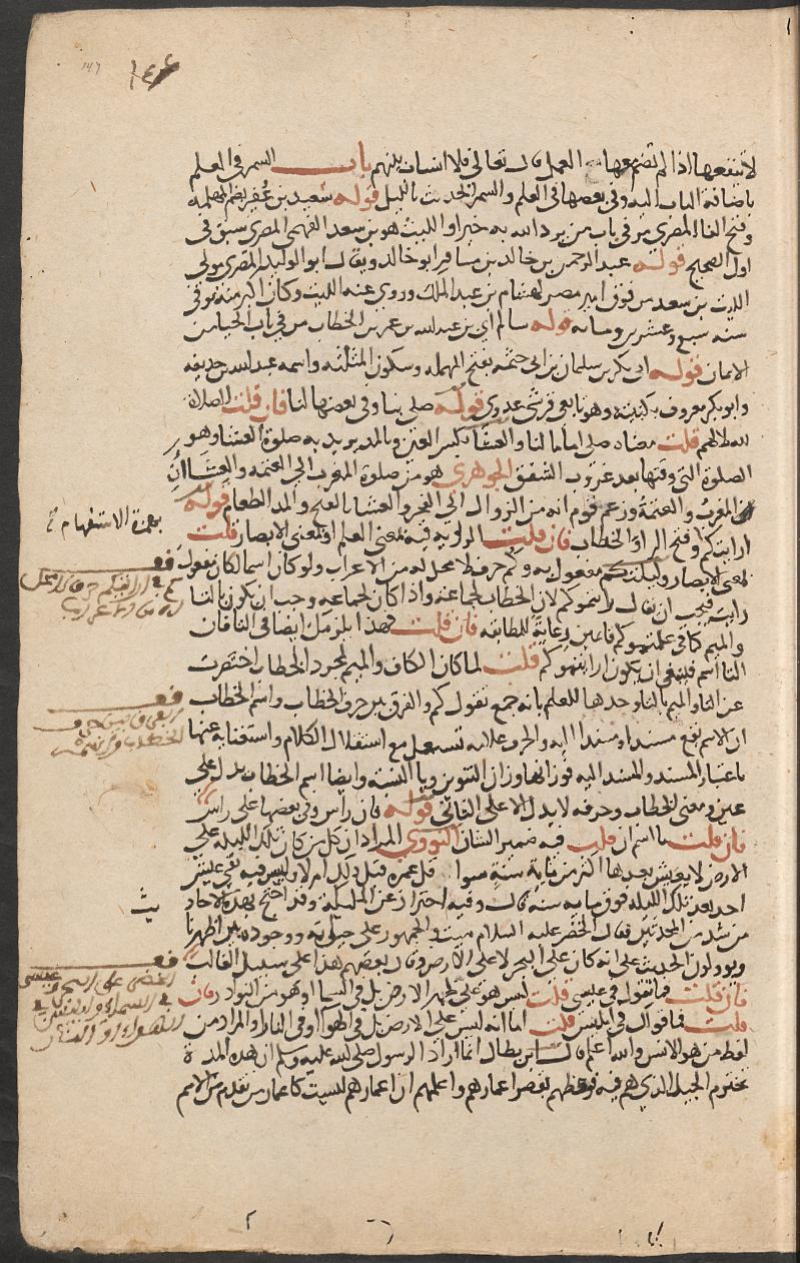 ١٤٦
147
لا تنفعها اذا لم تضم معها العمل قال تعالى فلا انساب بينهم باب السمر في العلم
باضافة الباب اليه وفي بعضها في العلم والسمر التحدث بالليل قوله سعيد بن عفير بضم المهملة
وفتح الفا المصري مر في باب من يرد الله به خيرا و الليث هو بن سعد الفهمي المصري سبق في
اول الصحيح قوله عبد الرحمن بن خالد بن مسافر ابو خالد ويقال ابو الوليد المصري مولى
الليث بن سعد من فوق امير مصر لهشام بن عبد الملك وروى عنه الليث وكان اكبر منه توفى
سنه سبع وعشرين وماية قوله سالم اي بن عبد الله بن عمر بن الخطاب مر في باب الحيا من
الايمان قوله ابي بكر بن سلمان بن ابي حثمه بفتح المهمله وسكون المثلثه واسمه عبد الله بن حذيفه
وابو بكر معروف بكنيته وهو تابعي قرشي عدوي قوله صلى بنا وفي بعضها لنا فان قلت الصلاة
لله لا لهم قلت معناه صلى اماما لنا والعشا بكسر العين وبالمد يريد به صلوة العشا وهو
الصلوة التي وقتها بعد غروب الشفق الجوهري هو من صلوة المغرب الى العتمه والعشاان
المغرب والعتمة وزعم قوم انه من الزوال الى الفجر والعشا بالفتح والمد الطعام قوله
ارايتكم وفتح الرا والخطاب فان قلت الرويه فيه بمعنى العلم او بمعنى الابصار قلت
بمعنى الابصار وليلتكم مفعول به وكم حرف لا محل له من الاعراب ولو كان اسما لكان مفعول
رايت فيجب ان يقال ارايتموكم لان الخطاب لجماعه واذا كان لجماعه وجب ان يكون بالتا
والميم كما في علمتموكم قايمين رعاية للمطابقه فان قلت فهذا يلزمك ايضا في التا فان
التا اسم فينبغي ان يكون ارايتموكم قلت لما كان الكاف والميم لمجرد الخطاب اختصرت
عن التا والميم بالتا وحدها للعلم بانه جمع بقول كم والفرق بين حرف الخطاب واسم الخطاب
ان الاسم يقع مسندا ومسندا اليه والحرف علامه تستعمل مع استقلال الكلام واستغنايه عنها
باعتبار المسند والمسند اليه فوزانها وزان التنوين ويا النسبه وايضا اسم الخطاب يدل على
عين ومعنى الخطاب وحرفه لا يدل الا على الثاني قوله فان راس وفي بعضها على راس
فان قلت ما اسم ان قلت فيه ضمير الشان النووي المراد ان كل من كان تلك الليله على
الارض لا يعيش بعدها اكثر من ماية سنة سوا قل عمره قبل ذلك ام لا وليس فيه نفي عيش
احد بعد تلك الليله فوق مايه سنه قال وفيه احتراز عن الملائكة وقد احتج بهذه الاحاديث
من شذ من المحدثين فقال الخضر عليه السلام ميت والجمهور على حياته ووجوده بين اظهرنا
ويوولون الحديث على انه كان على البحر لا على الارض وقال بعضهم هذا على سبيل الغالب
فان قلت فما تقول في عيسى قلت ليس هو على ظهر الارض بل في السما او هو من النوادر فان
قلت فما قولك في ابليس قلت اما انه ليس على الارض بل في الهوا او في النار او المراد من
لفظ من هو الانس والله اعلم قال ابن بطال انما اراد الرسول صلى الله عليه وسلم ان هذه المدة
تخترم الجيل الذي هم فيه فوعظهم بقصر اعمارهم واعلمهم ان اعمارهم ليست كاعمار من تقدم من الامم
بهمزة الاستفهام
قف
كم في ارايتكم حرف لا محل
له من الاعراب
قف
الخطاب
قف
عيسى
في السماء و ابليس في
الهواء او النار